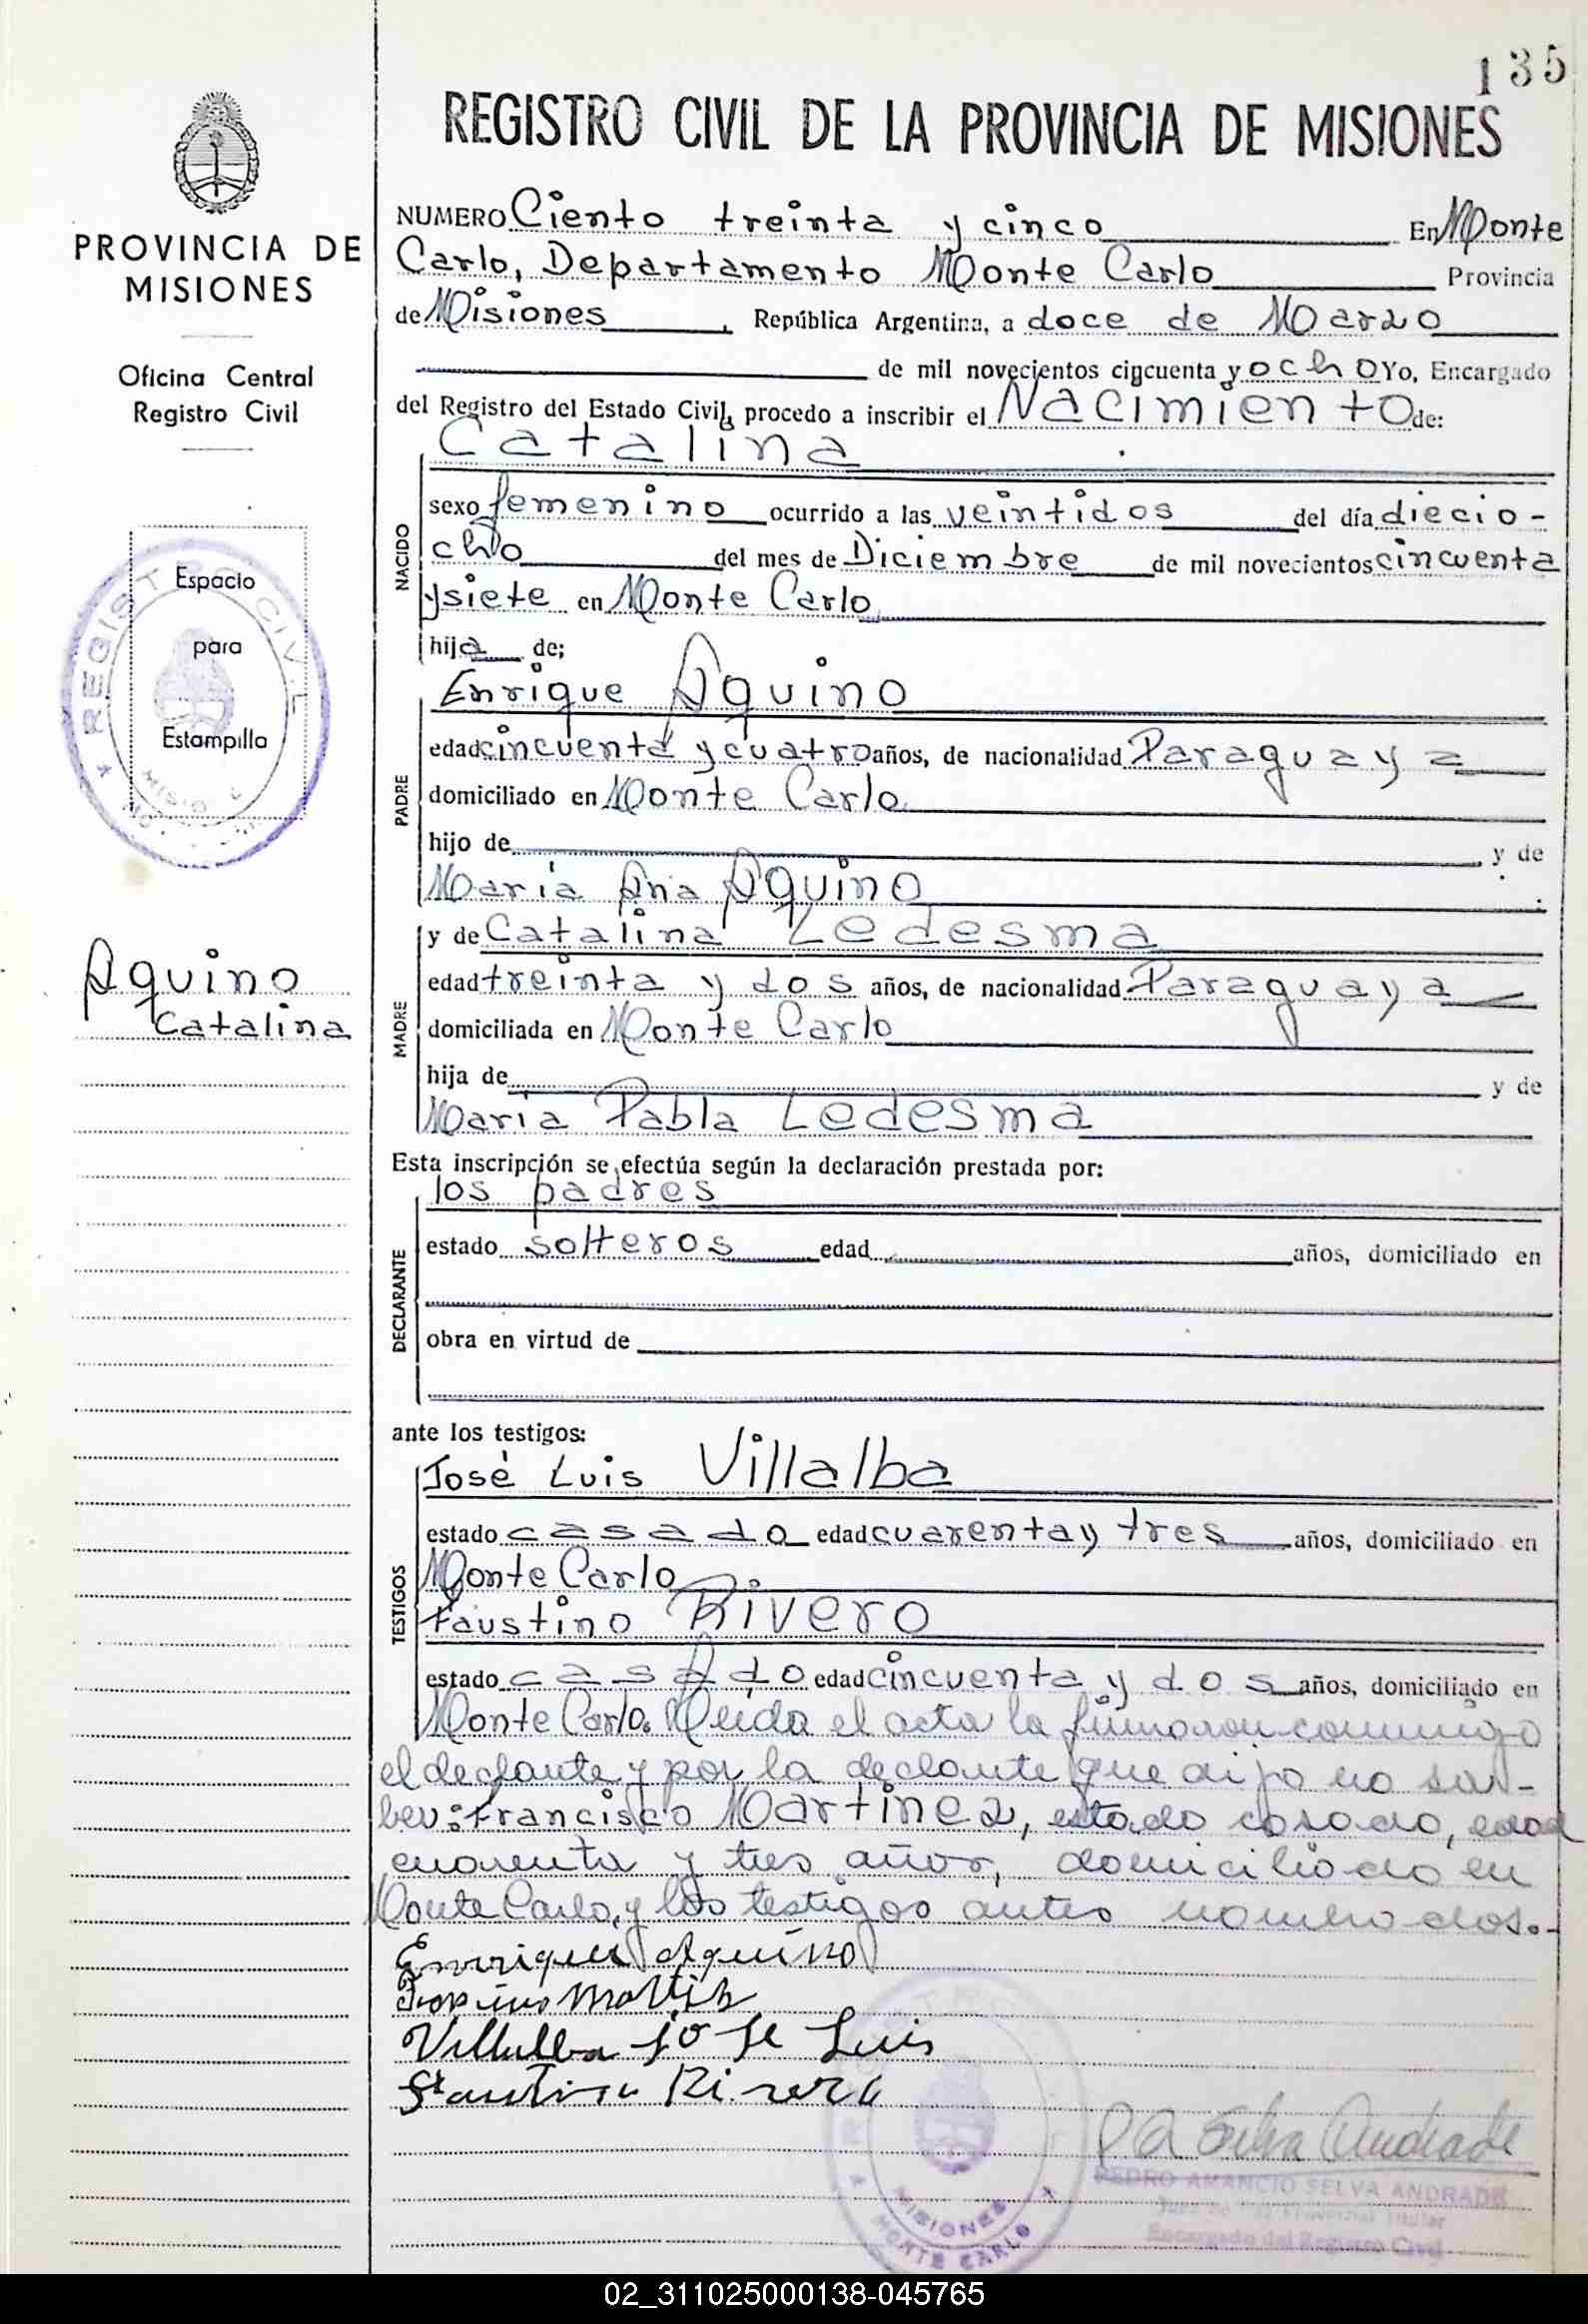 135
REGISTRO CIVIL DE LA PROVINCIA DE MISIONES
PROVINCIA DE
MISIONES
Oficina Central
Registro Civil
REGISTRO CIVIL
Espacio
para
Estampilla
Aquino
Catalina
NUMERO Ciento treinta y cinco En Monte
Carlo, Departamento Monte Carlo Provincia
de Misiones, República Argentina, a doce de Marzo
de mil novecientos cincuenta y ocho Yo, Encargado
del Registro del Estado Civil, procedo a inscribir el Nacimiento de:
Catalina
NACIDO
sexo femenino ocurrido a las veintidos del día diecio-
cho del mes de Diciembre de mil novecientos cincuenta
y siete en Monte Carlo
hija de;
Enrique Aquino
PADRE
edad cincuenta y cuatro años, de nacionalidad Paraguaya
domiciliado en Monte Carlo
hijo de y de
María Ana Aquino
y de Catalina Ledesma
MADRE
edad treinta y dos años, de nacionalidad Paraguaya
domiciliada en Monte Carlo
hija de y de
María Pabla Ledesma
Esta inscripción se efectúa según la declaración prestada por:
los padres
DECLARANTE
estado solteros edad años, domiciliado en
obra en virtud de
ante los testigos:
José Luis Villalba
TESTIGOS
estado casado edad cuarenta y tres años, domiciliado en
Monte Carlo
Faustino Rivero
estado casado edad cincuenta y dos años, domiciliado en
Monte Carlo. Leída el acta la firmaron conmigo
el declante y por la declante que dijo no sa-
ber: Francisco Martinez, estado casado, edad
cuarenta y tres años, domiciliado en
Monte Carlo, y los testigos antes nombrados.-
Enrrique Aquino
Villalba Jose Luis
Faustino Rivero
P A Selva Andrade
PEDRO AMANCIO SELVA ANDRADE
Encargado del Registro Civil
MISIONES
MONTE CARLO
02_311025000138-045765